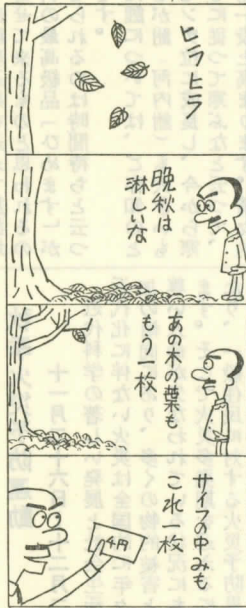 ヒラヒラ
晩秋は
淋しいな
あの木の葉も
もう一枚
サイフの中みも
これ一枚
千円